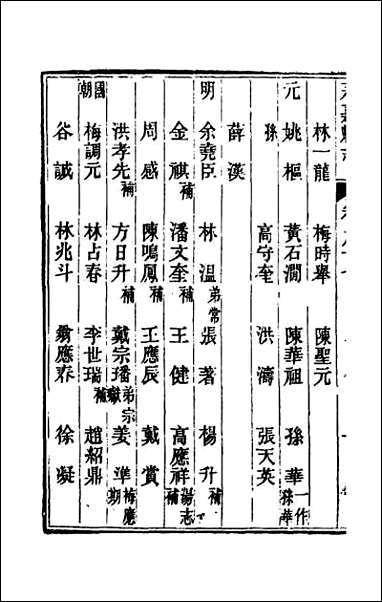 林一龍　梅時舉　陳聖元
元　姚樞　黃石澗　陳華祖　孫華一作孫華
孫　高守奎　洪濤　張天英
薛漢
明　余堯臣　林溫弟常　張著　楊升補
金祺補　潘文奎補　王健　高應祥補湯志
周感　陳鳴鳳補　王應辰　戴賞
洪孝先補　方日升補　戴宗璠弟宗嶽　姜準梅應期
國朝　梅調元　林占春　李世瑞補　趙紹鼎
谷誠　林兆斗　應春　徐凝